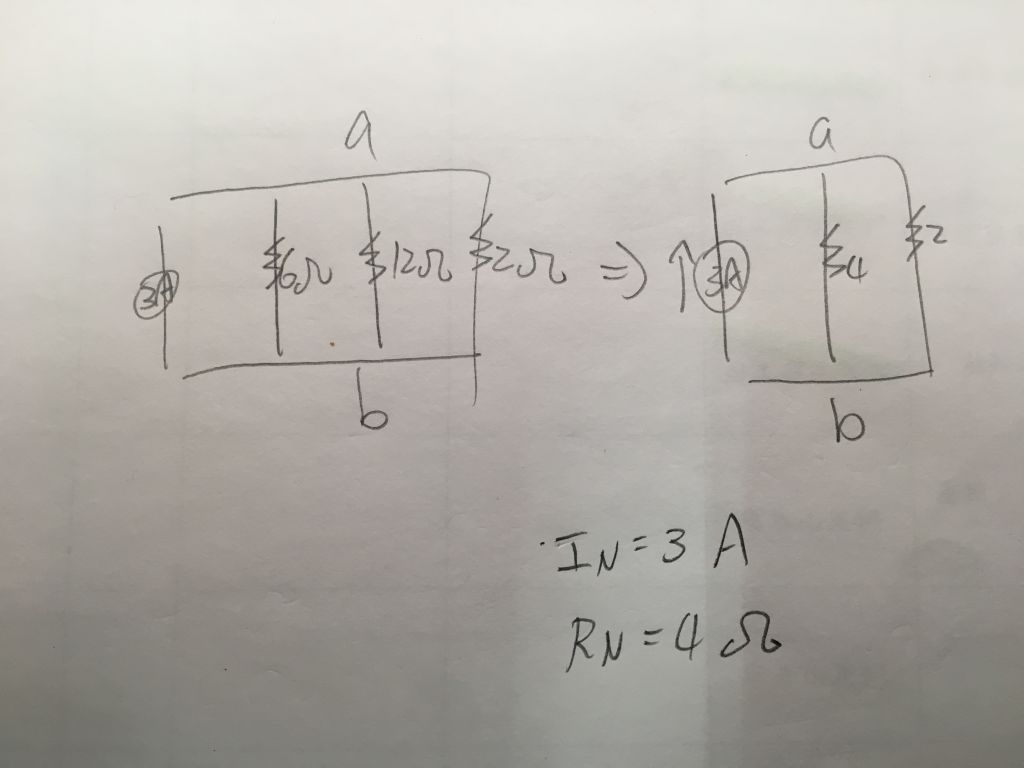 a
3A 6Ω 12Ω 2Ω ⇒ ↑ 3A 4 2
b
a
b
I_N = 3 A
R_N = 4 Ω